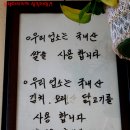 ○우리 업소는 국내산
쌀을 사용합니다
○우리 업소는 국내산
김치, 오리, 닭고기를
사용 합니다.